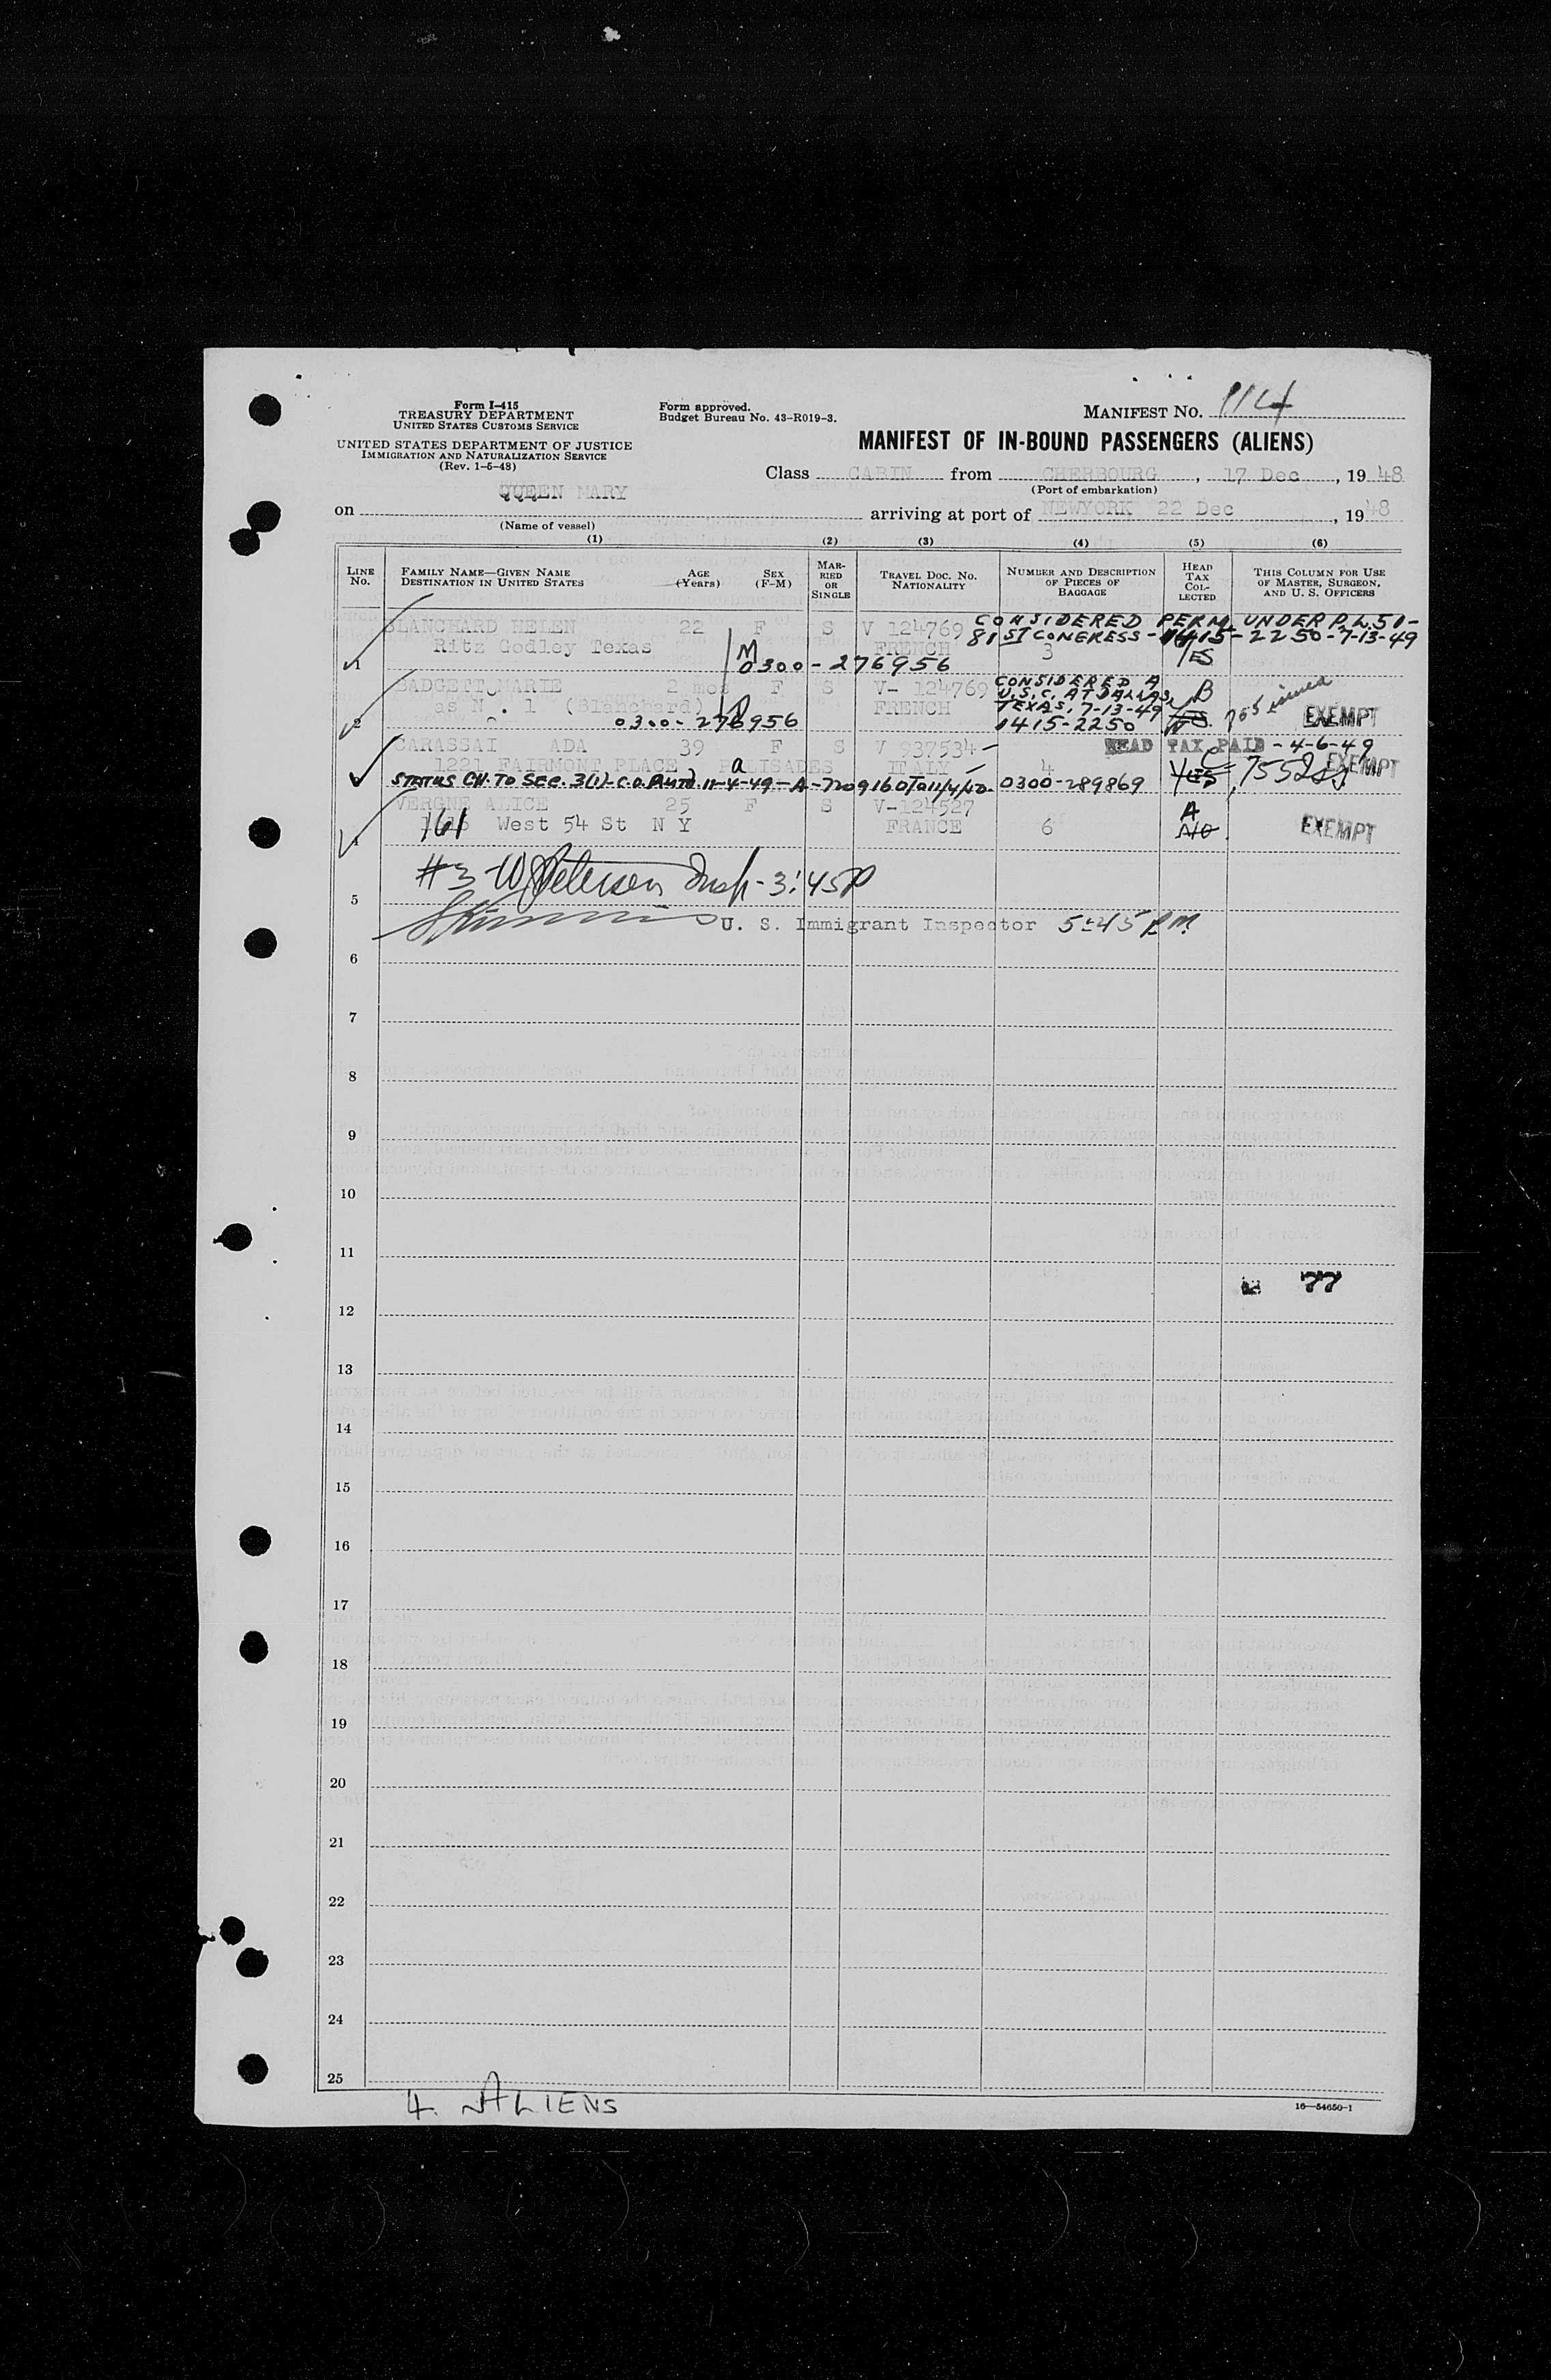 Form I-415
TREASURY DEPARTMENT
UNITED STATES CUSTOMS SERVICE
UNITED STATES DEPARTMENT OF JUSTICE
IMMIGRATION AND NATURALIZATION SERVICE
(Rev. 1-5-48)
Form approved.
Budget Bureau No. 43-R019-3.
MANIFEST NO.
MANIFEST OF IN-BOUND PASSENGERS (ALIENS)
Class CABIN from CHERBOURG, 17 Dec, 1948
(Port of embarkation)
on QUEEN MARY arriving at port of NEWYORK 22 Dec, 1948
(Name of vessel)
(1) (2) (3) (4) (5) (6)
LINE NO. FAMILY NAME—GIVEN NAME DESTINATION IN UNITED STATES AGE (Years) SEX (F-M) MARRIED OR SINGLE TRAVEL DOC. NO. NATIONALITY NUMBER AND DESCRIPTION OF PIECES OF BAGGAGE HEAD TAX COLLECTED THIS COLUMN FOR USE OF MASTER, SURGEON, AND U. S. OFFICERS
CONSIDERED PERM. UNDER P.L. 51-
BLANCHARD HELEN 22 F S V 124769 81ST CONGRESS - 1415-2250-7-13-49
Ritz Godley Texas FRENCH 3 YES
1 M 0300-276956
BADGETT MARIE 2 mos F S V- 124769 CONSIDERED A U.S.C. AT DALLAS, B
as N . 1 (Blanchard) FRENCH TEXAS, 7-13-49 EXEMPT
2 0300-276956 1415-2250
CARASSAI ADA 39 F S V 937534 HEAD TAX PAID - 4-6-49
1221 FAIRMONT PLACE PALISADES ITALY 4 C EXEMPT
STATUS CH. TO SEC. 3(1)-C.O. Auto. 11-4-49-A-7209160 0300-289869 YES
VERGNE ALICE 25 F S V-124527 A
161 West 54 St N Y FRANCE 6 NO EXEMPT
4
#3 W Petersen Insp - 3:45P
5
U. S. Immigrant Inspector 5:45 P.M.
6
7
8
9
10
11
77
12
13
14
15
16
17
18
19
20
21
22
23
24
25
4 ALIENS
16—54650-1